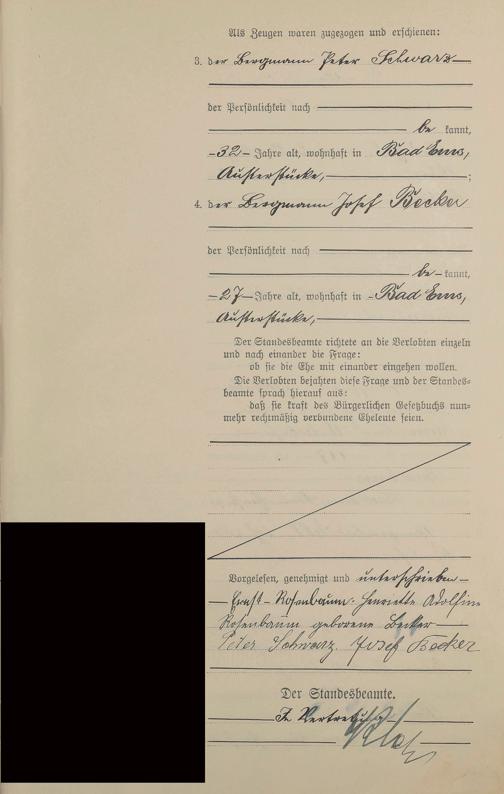 Als Zeugen waren zugezogen und erschienen:
3. der Bergmann Peter Schwarz
der Persönlichkeit nach
be kannt,
32 Jahre alt, wohnhaft in Bad Ems,
;
4. der Bergmann Josef Becker
der Persönlichkeit nach
be kannt,
27 Jahre alt, wohnhaft in Bad Ems,
Der Standesbeamte richtete an die Verlobten einzeln
und nach einander die Frage:
ob sie die Ehe mit einander eingehen wollen.
Die Verlobten bejahten diese Frage und der Standes-
beamte sprach hierauf aus:
daß sie kraft des Bürgerlichen Gesetzbuchs nun-
mehr rechtmäßig verbundene Eheleute seien.
Vorgelesen, genehmigt und unterschrieben
Ernst Rosenbaum. Henriette Adolfine
Rosenbaum geborene Becker
Peter Schwarz. Josef Becker
Der Standesbeamte.
In Vertretung